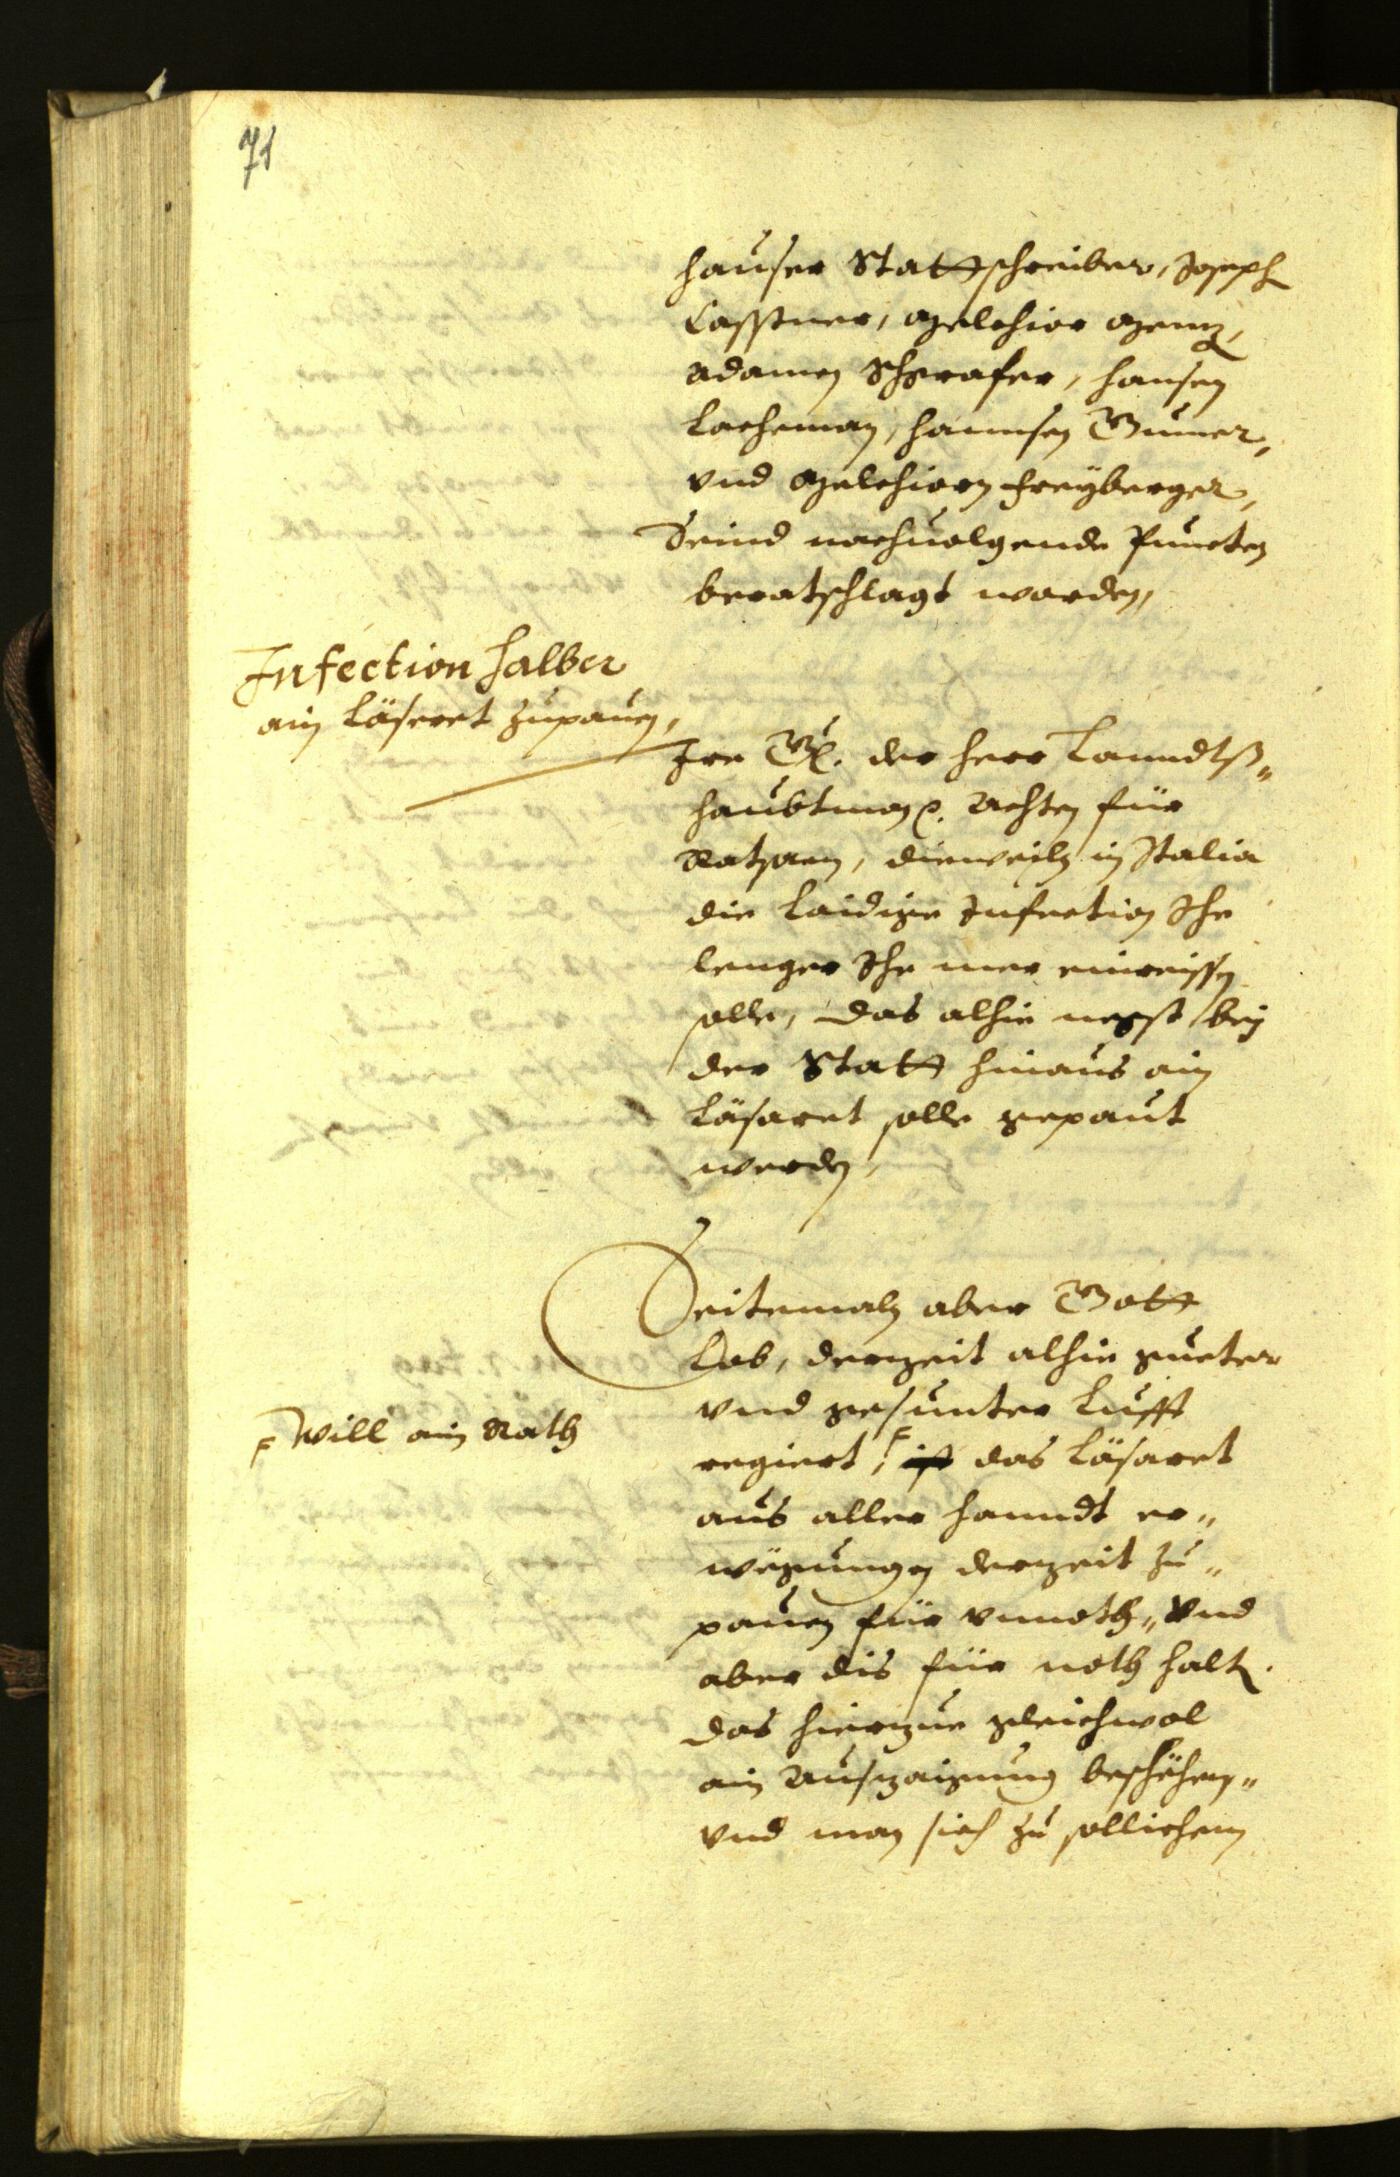 71
hauser Stattschreiber, Joseph
Casstner, Melchior Menz,
Adamen Schgrafer, Hansen
Lachman, Hannsen Gumer,
vnd Melchiorn Freyberger,
Seind nachuolgende Puncten
beratschlagt worden,
Infection halber
ain Läseret zupauen,
Ire Gl. der Herr Lanndtß„
haubtman ꝛ. Achten für
Ratsam, dieweiln in Italia
die laidige Infection Ihe
lenger Ihe mer einreissen
solle, das alhie negst bey
der Statt hinaus ain
Läsaret solle gepaut
werden,
Seitemaln aber Gott
Lob, derzeit alhie gueter
vnd gesunter Lufft
regiert, ist das Läsaret
will ain Rath
aus aller handt er„
wëgungen derzeit zu„
pauen für vnnoth„ vnd
aber dis für noth halt.
das hierzue gleichwol
ain Auszaigung beschëhen„
vnd man sich zu sollichem